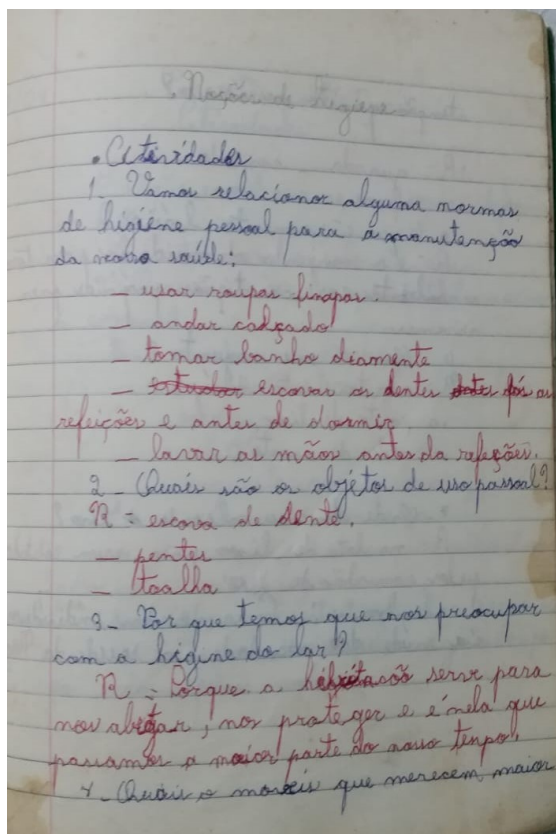 Noções de higiene
• Atividades
1_ Vamos relacionar alguma normas
de higiene pessoal para a manutenção
da nossa saúde:
_ usar roupas limpas.
_ andar calçado
_ tomar banho diamente
_ estudar escovar os dentes dates pós as
refeições e antes de dormir.
_ lavar as mãos antes da refeções.
2_ Quais são os objétos de uso passoal?
R = escova de dente.
_ pentes
_ toalha
3_ Por que temos que nos preocupar
com a higine do lar?
R = Porque a servr para
nos abigtar, nos proteger e é nela que
passamos a maior parte do nosso tenpo.
4_ Quais o que merecem maior